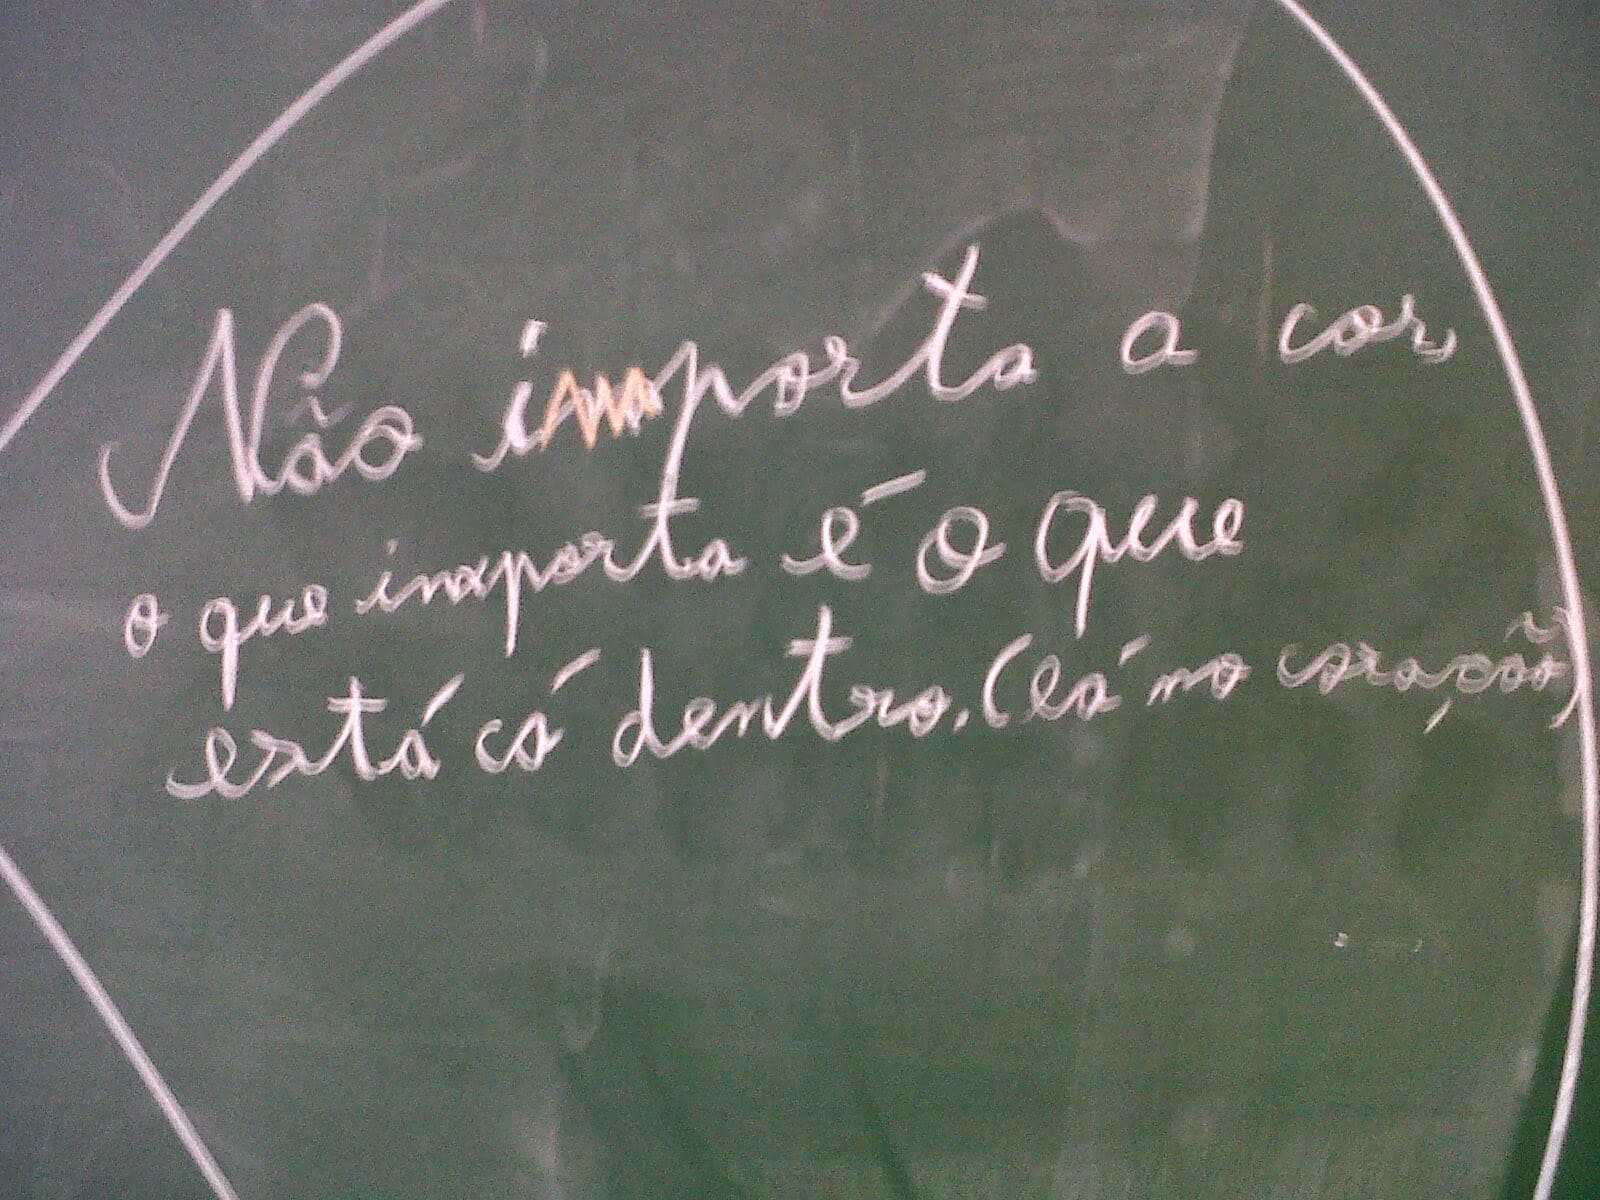 Não importa a cor,
o que importa é o que
está cá dentro. (lá no coração)